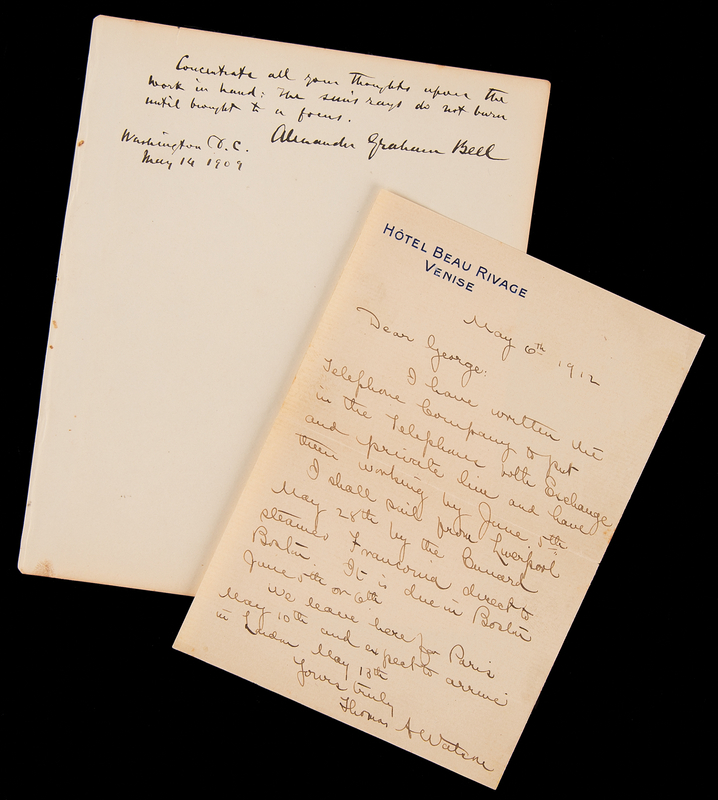 Concentrate all your thoughts upon the
work in hand: The sun's rays do not burn
until brought to a focus.
Alexander Graham Bell
Washington D.C.
May 14 1909
HÔTEL BEAU RIVAGE
VENISE
May 6th 1912
Dear George:
I have written the
Telephone Company to put
in the Telephones both Exchange
and private line and have
them working by June 5th
I shall sail from Liverpool
May 28th by the Cunard
steamer Franconia direct to
Boston It is due in Boston
June 5th or 6th
We leave here for Paris
May 10th and expect to arrive
in London May 13th
Yours truly
Thomas A Watson